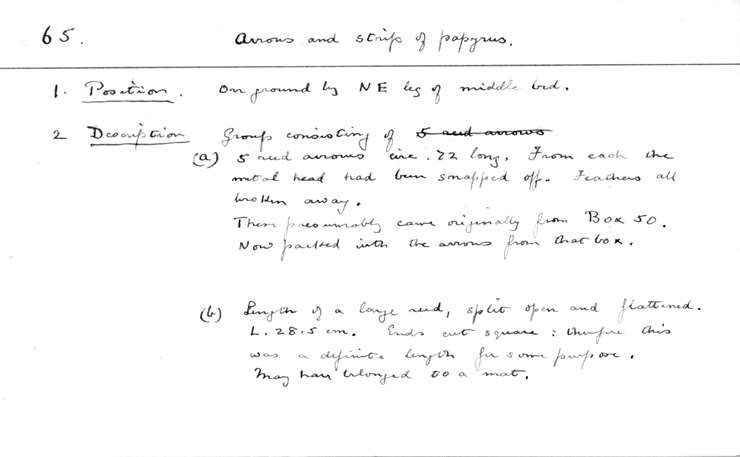 65. Arrows and strip of papyrus.
1. Position. On ground by NE leg of middle bed.
2 Description Group consisting of 5 reed arrows
(a) 5 reed arrows circ. .72 long. From each the
metal head had been snapped off. Feathers all
broken away.
These presumably came originally from Box 50.
Now packed with the arrows from that box.
(b) Length of a large reed, split open and flattened.
L. 28.5 cm. Ends cut square : therefore this
was a definite length for some purpose.
May have belonged to a mat.